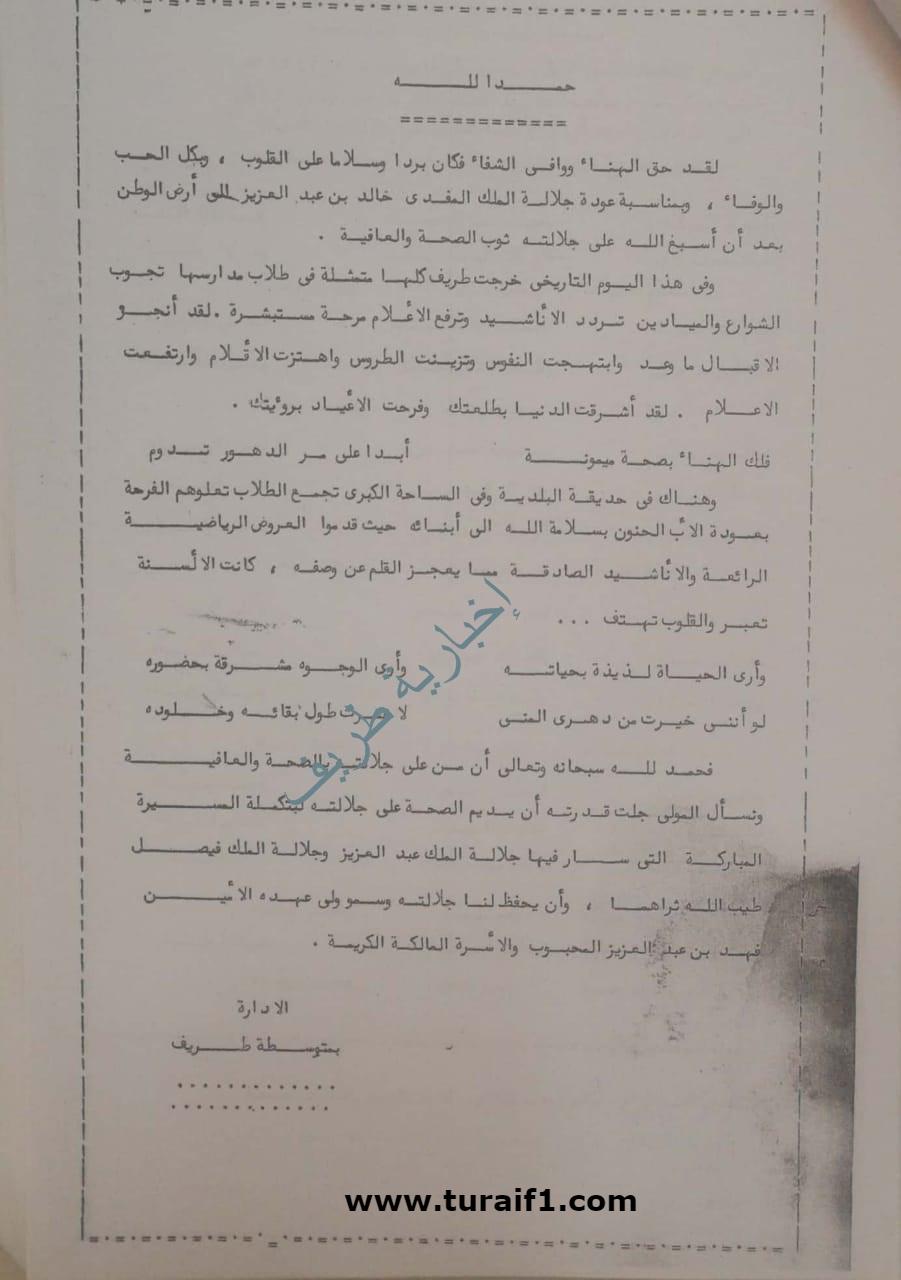 حمدا للـه
لقد حق الهناء ووافى الشفاء فكان بردا وسلاما على القلوب ، وبكل الحب
والوفاء ، وبمناسبة عودة جلالة الملك المفدى خالد بن عبد العزيز الى أرض الوطن
بعد أن أسبغ الله على جلالته ثوب الصحة والعافية .
وفى هذا اليوم التاريخى خرجت طريف كلها متمثلة فى طلاب مدارسها تجوب
الشوارع والميادين تردد الأناشيد وترفع الأعلام مرحة مستبشرة . لقد أنجز
الاقبال ما وعد وابتهجت النفوس وتزينت الطروس واهتزت الأقلام وارتفعت
الاعلام . لقد أشرقت الدنيا بطلعتك وفرحت الأعياد برؤيتك .
فلك الهناء بصحة ميمونة أبدا على مر الدهور تدوم
وهناك فى حديقة البلدية وفى الساحة الكبرى تجمع الطلاب تعلوهم الفرحة
بعودة الأب الحنون بسلامة الله الى أبنائه حيث قدموا العروض الرياضية
الرائعة والأناشيد الصادقة مما يعجز القلم عن وصفه ، كانت الألسنة
تعبر والقلوب تهتف ...
وأرى الحياة لذيذة بحياته وأرى الوجوه مشرقة بحضوره
لو أننى خيرت من دهرى المنى لا طول بقائه وخلوده
فحمد للـه سبحانه وتعالى أن من على جلالته بالصحة والعافية
ونسأل المولى جلت قدرته أن يديم الصحة على جلالته لتكملة المسيرة
المباركة التى سار فيها جلالة الملك عبد العزيز وجلالة الملك فيصل
طيب الله ثراهما ، وأن يحفظ لنا جلالته وسمو ولى عهده الأمين
فهد بن عبد العزيز المحبوب والأسرة المالكة الكريمة .
الادارة
بمتوسطة طريف
إخبارية طريف
www.turaif1.com